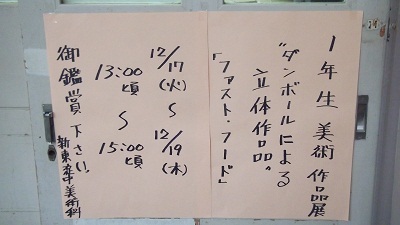 1年生 美術 作品展
"ダンボールによる
立体作品"
「ファスト・フード」
12/17(火)〜12/19(木)
13:00頃〜15:00頃
御鑑賞下さい!
新東華中美術科